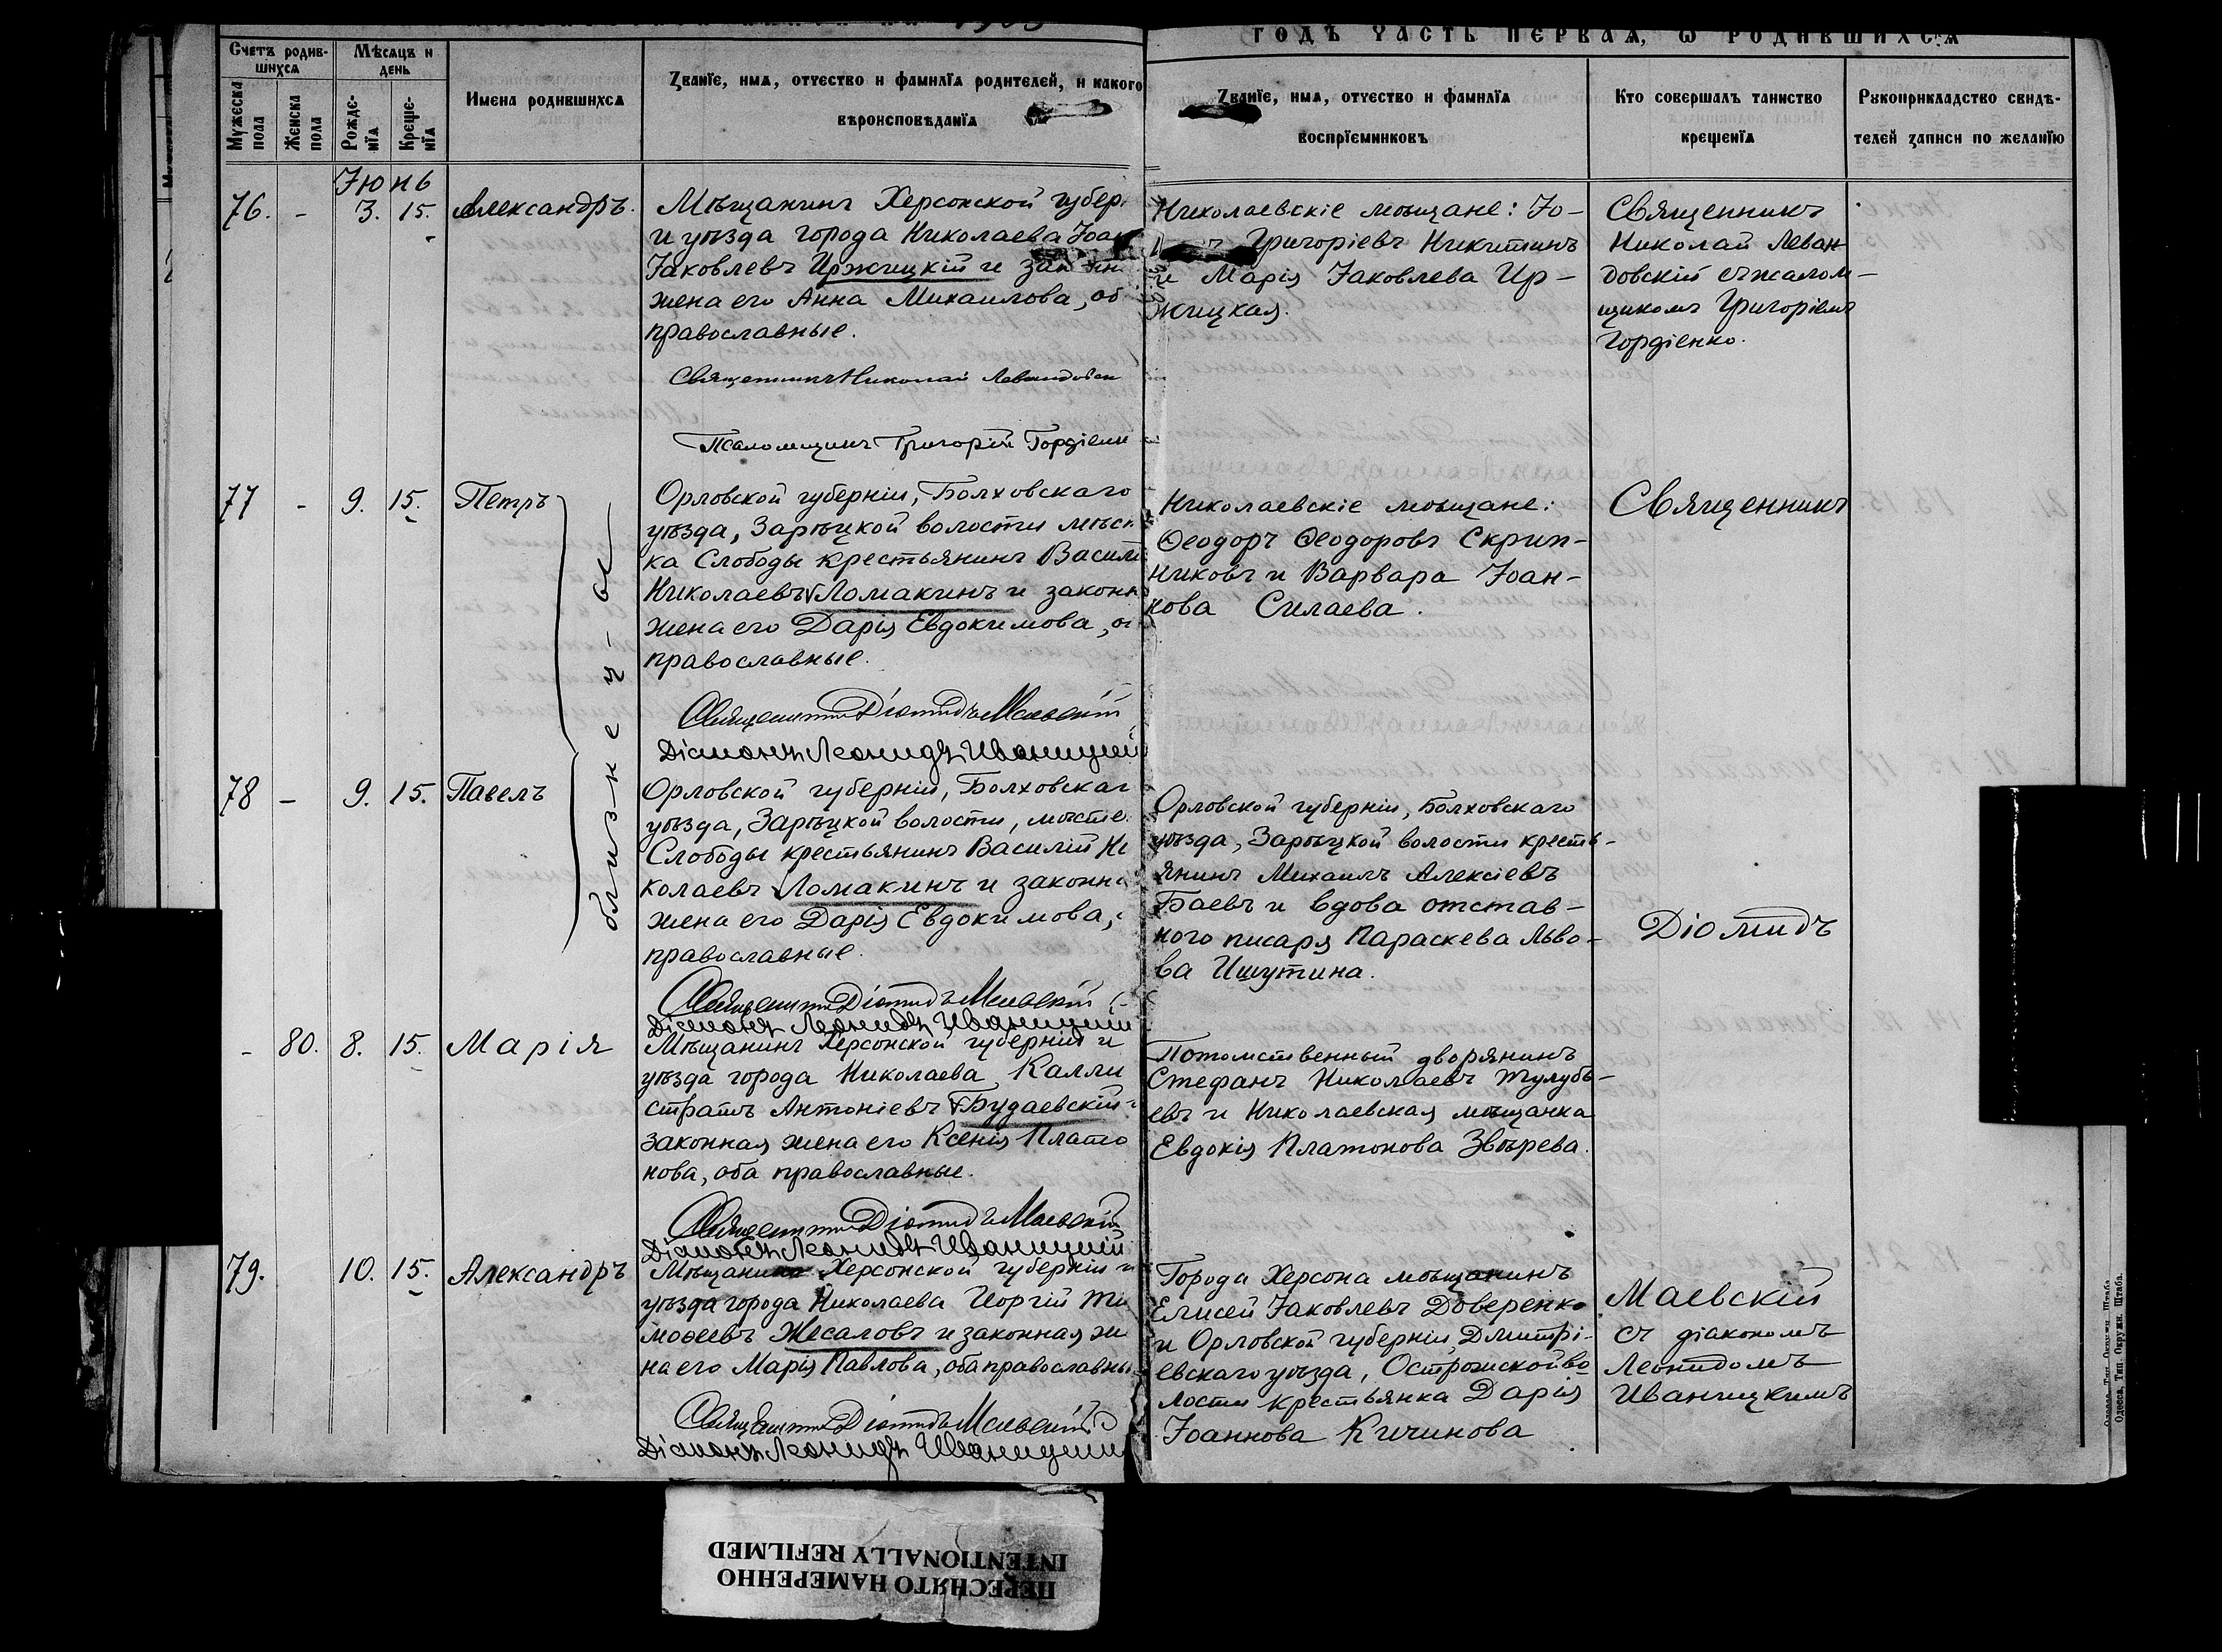 ГОДЪ ЧАСТЬ ПЕРВАЯ, О РОДИВШИХСЯ
Счетъ родив-
шихся
Мѣсяцъ и
день
Мужеска
пола
Женска
пола
Рожде-
нія
Креще-
нія
Имена родившихся
Званіе, имя, отчество и фамилія родителей, и какого
вѣроисповѣданія
Званіе, имя, отчество и фамилія
воспріемниковъ
Кто совершалъ таинство
крещенія
Рукоприкладство свидѣ-
телей записи по желанію
Іюнь
76. - 3. 15. Александръ.
Мѣщанинъ Херсонской губер
и уѣзда города Николаева Іоан
Іаковлевъ Иржицкій и
жена его Анна Михаилова, об
православные.
Священникъ Николай Левандовск
Псаломщикъ Григорій Гордіенк
Николаевскіе мѣщане: Іо-
Григоріевъ Никитинъ
и Марія Іаковлева Ир-
жицкая.
Священникъ
Николай Леван
довскій съ псалом-
щикомъ Григоріемъ
Гордіенко.
77 - 9. 15. Петръ
близнецы
Орловской губерніи, Болховскаго
уѣзда, Зарѣцкой волости мѣст
ка Слободы крестьянинъ Васил
Николаевъ Ломакинъ и законн
жена его Дарія Евдокимова, о
православные.
Священникъ Діомидъ Маевскій
Діаконъ Леонидъ Иваницкій
Николаевскіе мѣщане:
Ѳеодоръ Ѳеодоровъ Скрип-
никовъ и Варвара Іоан-
нова Силаева.
Священникъ
78 - 9. 15. Павелъ
Орловской губерніи, Болховскаг
уѣзда, Зарѣцкой волости, мѣсте
Слободы крестьянинъ Василій Ни
колаевъ Ломакинъ и законна
жена его Дарія Евдокимова,
православные.
Священникъ Діомидъ Маевскій
Діаконъ Леонидъ Иваницкій
Орловской губерніи, Болховскаго
уѣзда, Зарѣцкой волости кресть-
янинъ Михаилъ Алексіевъ
Баевъ и вдова отстав-
ного писаря Параскева Льво-
ва Ишутина.
Діомидъ
- 80. 8. 15. Марія
Мѣщанинъ Херсонской губерніи и
уѣзда города Николаева Калли
стратъ Антоніевъ Будаевскій
законная жена его Ксенія Плато
нова, оба православные.
Священникъ Діомидъ Маевскій
Діаконъ Леонидъ Иваницкій
Потомственный дворянинъ
Стефанъ Николаевъ Тулубь-
евъ и Николаевская мѣщанка
Евдокія Платонова Звѣрева.
79. 10. 15. Александръ
Мѣщанинъ Херсонской губерніи и
уѣзда города Николаева Георгій Ти
моѳеевъ Жесаловъ и законная же
на его Марія Павлова, оба православны
Священникъ Діомидъ Маевскій
Діаконъ Леонидъ Иваницкій
Города Херсона мѣщанинъ
Елисей Іаковлевъ Доверенко
и Орловской губерніи, Дмитрі-
евскаго уѣзда, Острожской во-
лости крестьянка Дарія
Іоаннова Кичинова
Маевскій
съ діакономъ
Леонидомъ
Иваницкимъ
Одесса, Тип. Окружн. Штаба.
Одесса, Тип. Окружн. Штаба.
ПЕРЕСНЯТО НАМЕРЕННО
INTENTIONALLY REFILMED